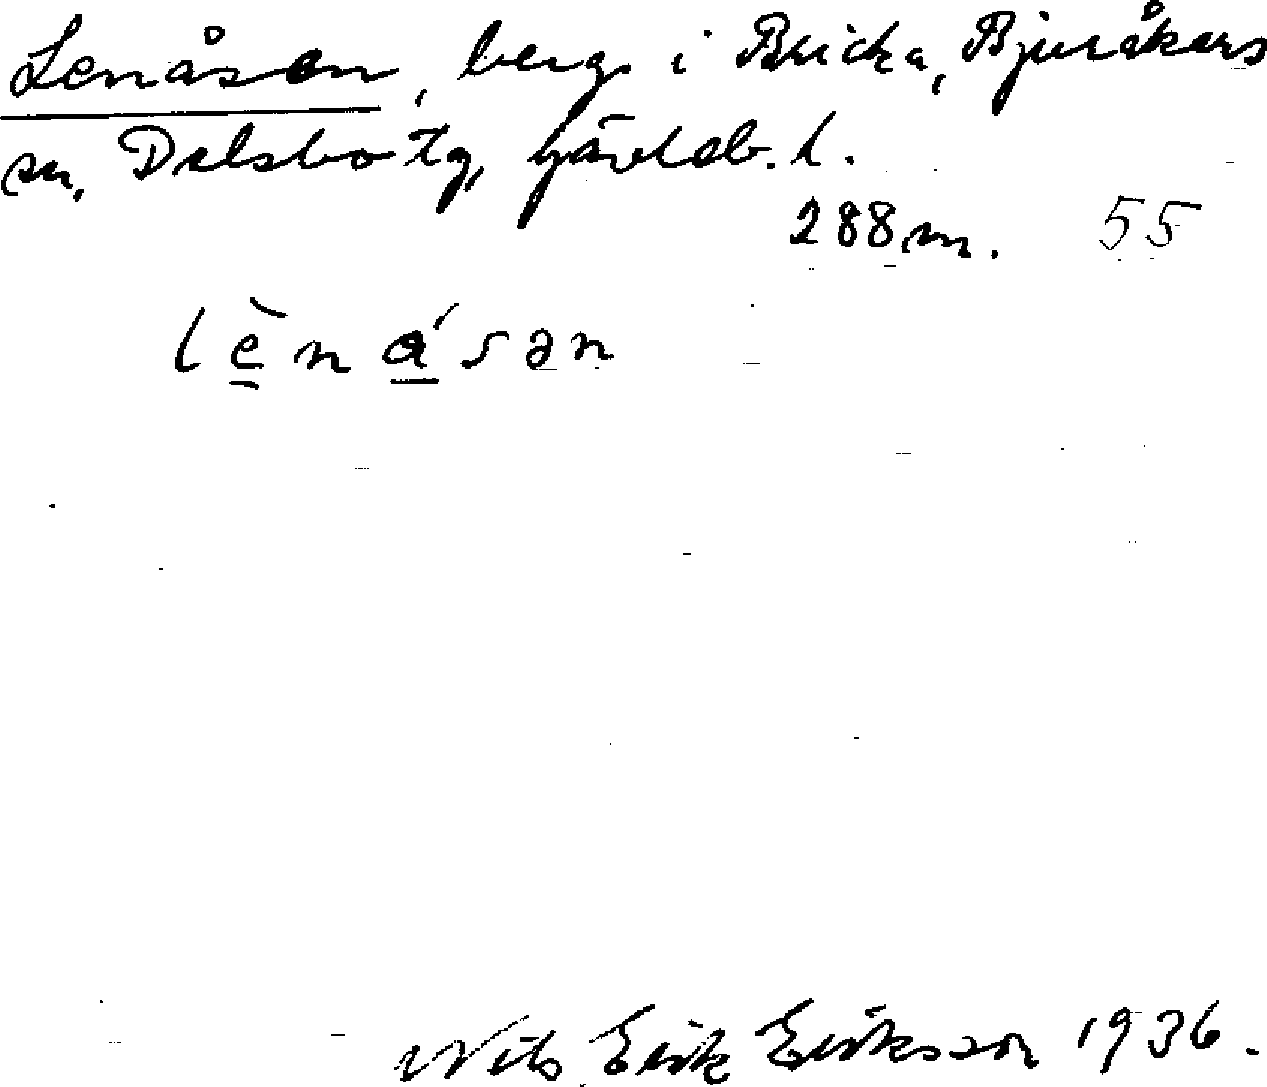 Lenåsen, berg i Bricka, Bjuråkers
sn, Delsbo tg, Gävleb. l.
288 m. 55
lènásən
Nils Erik Eriksson 1936.